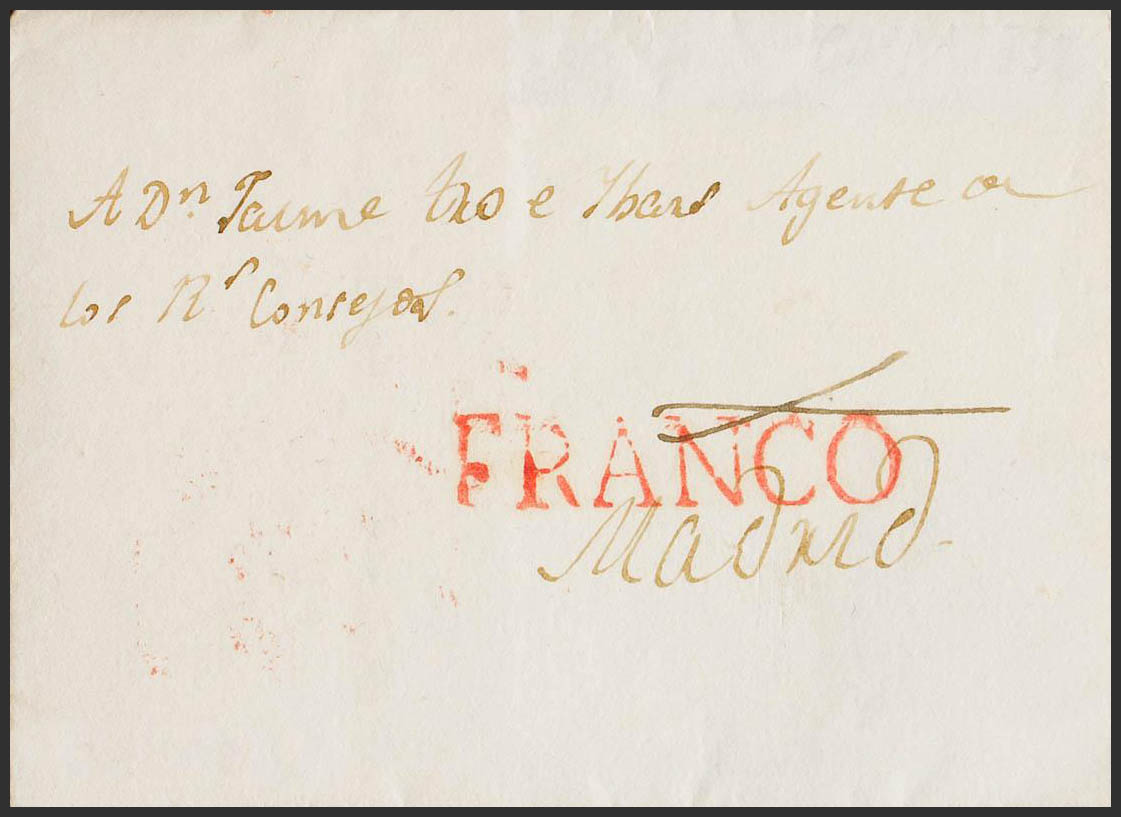 A Dn Jaime Ybars Agente
los Rs Consejos.
FRANCO
Madrid